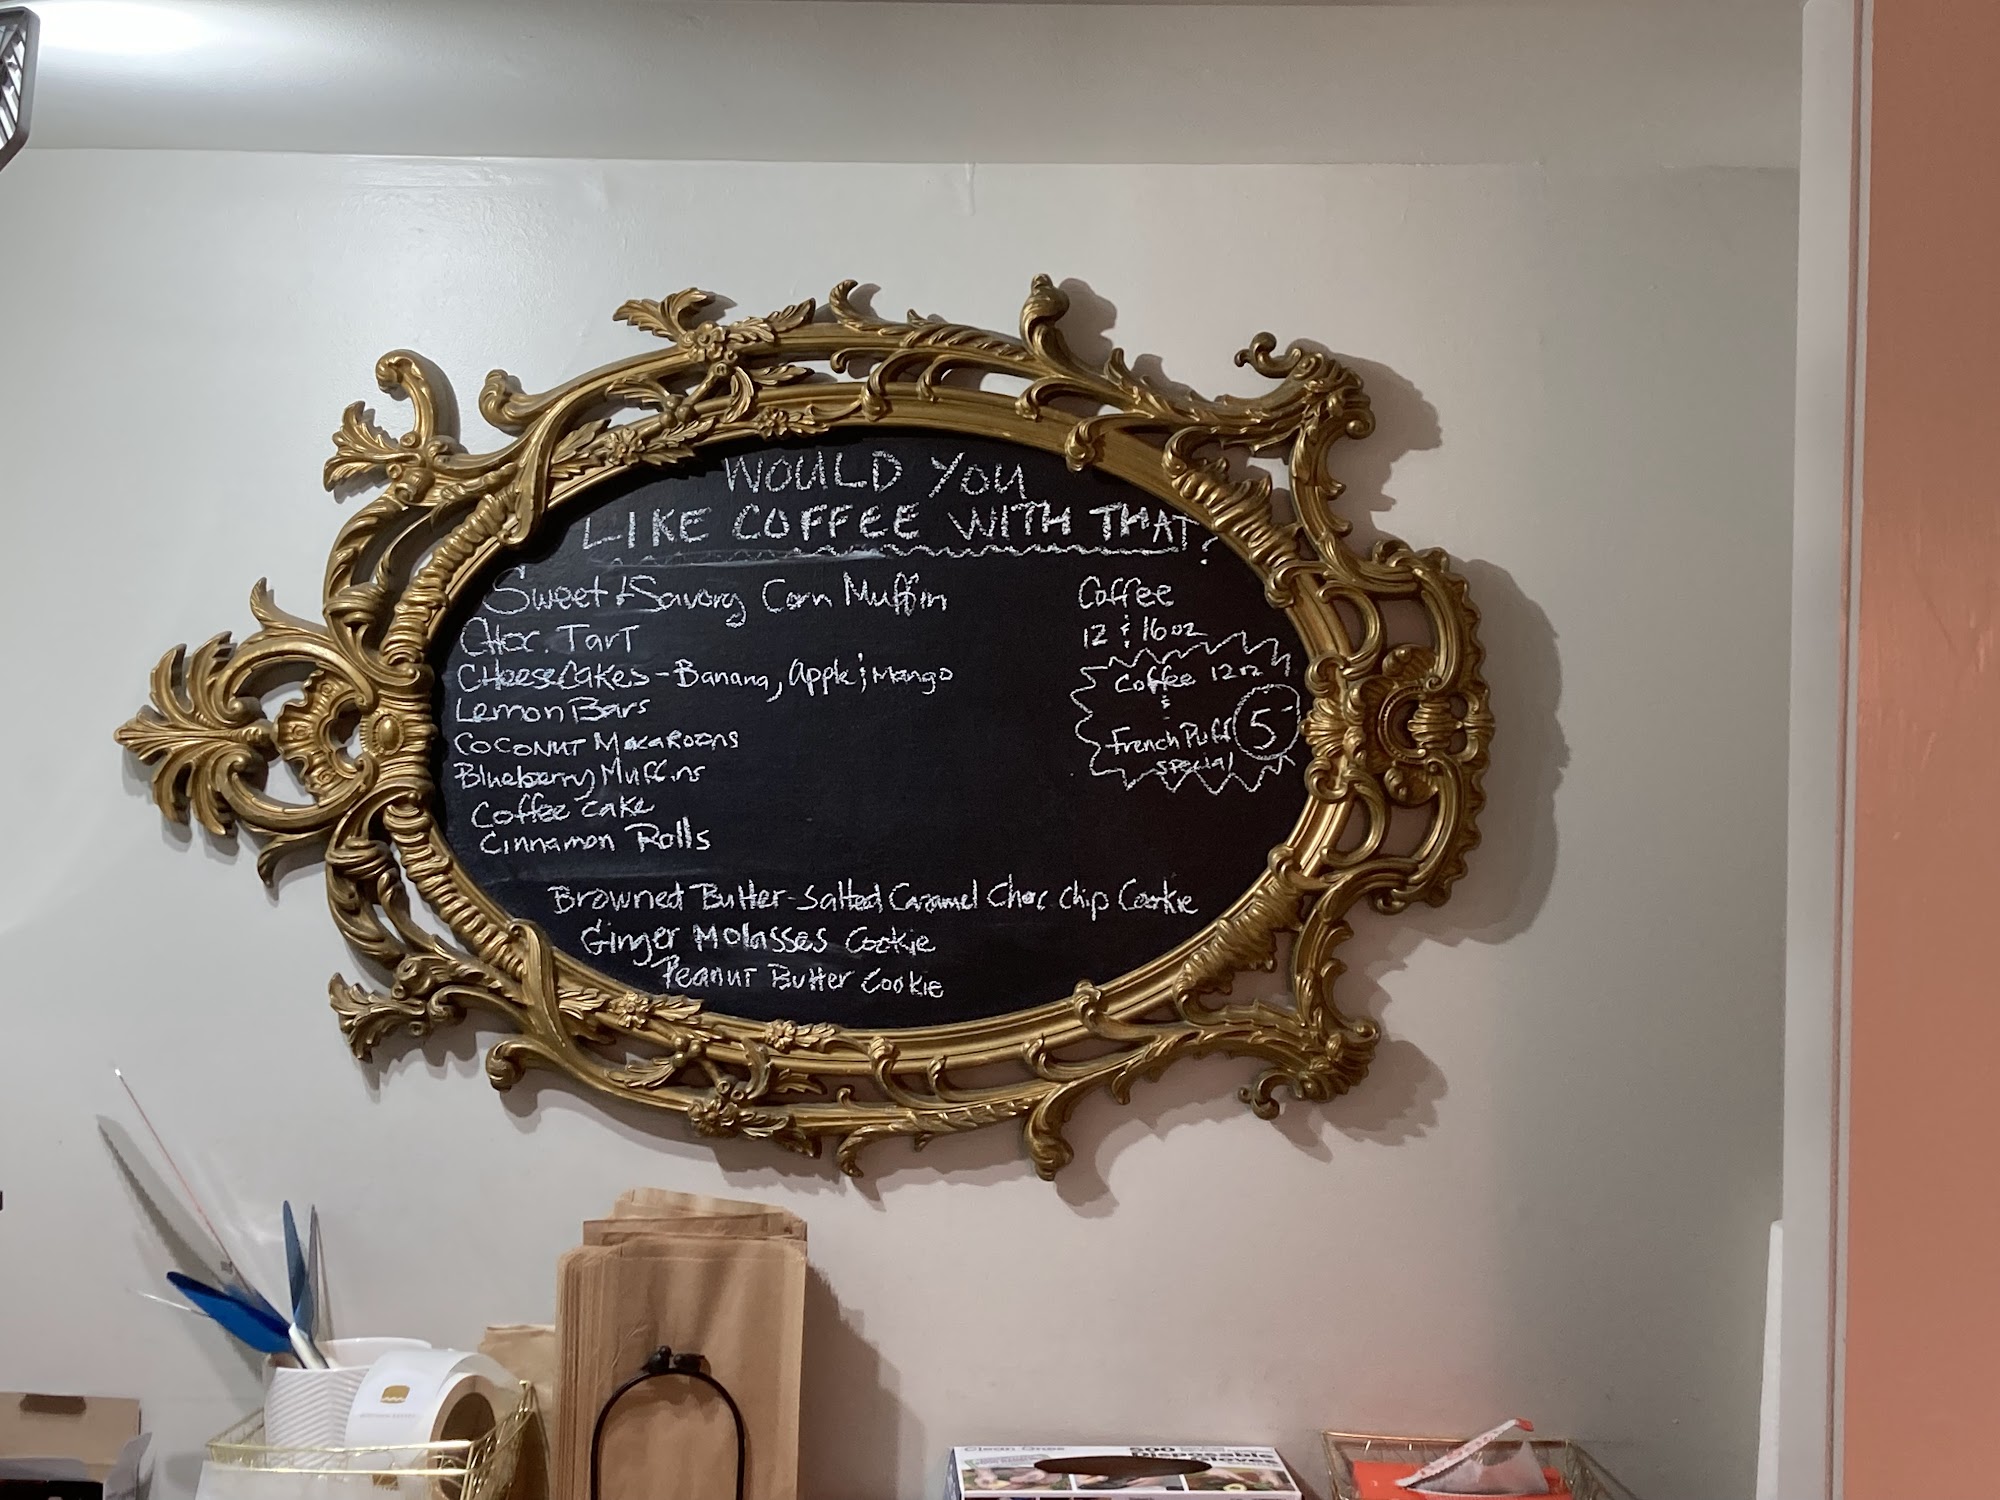 WOULD YOU
LIKE COFFEE WITH THAT?
Sweet & Savory Corn Muffin
Choc. Tart
CHeeseCakes - Banana, Apple, Mango
Lemon Bars
COCONUT MacaROONS
Blueberry Muffins
Coffee cake
Cinnamon Rolls
Browned Butter-Salted Caramel Choc Chip Cookie
Ginger Molasses Cookie
Peanut Butter Cookie
Coffee
12 & 16oz
Coffee 12oz
&
French Puff
special
5-
Clean Ones
500
Disposable
Gloves